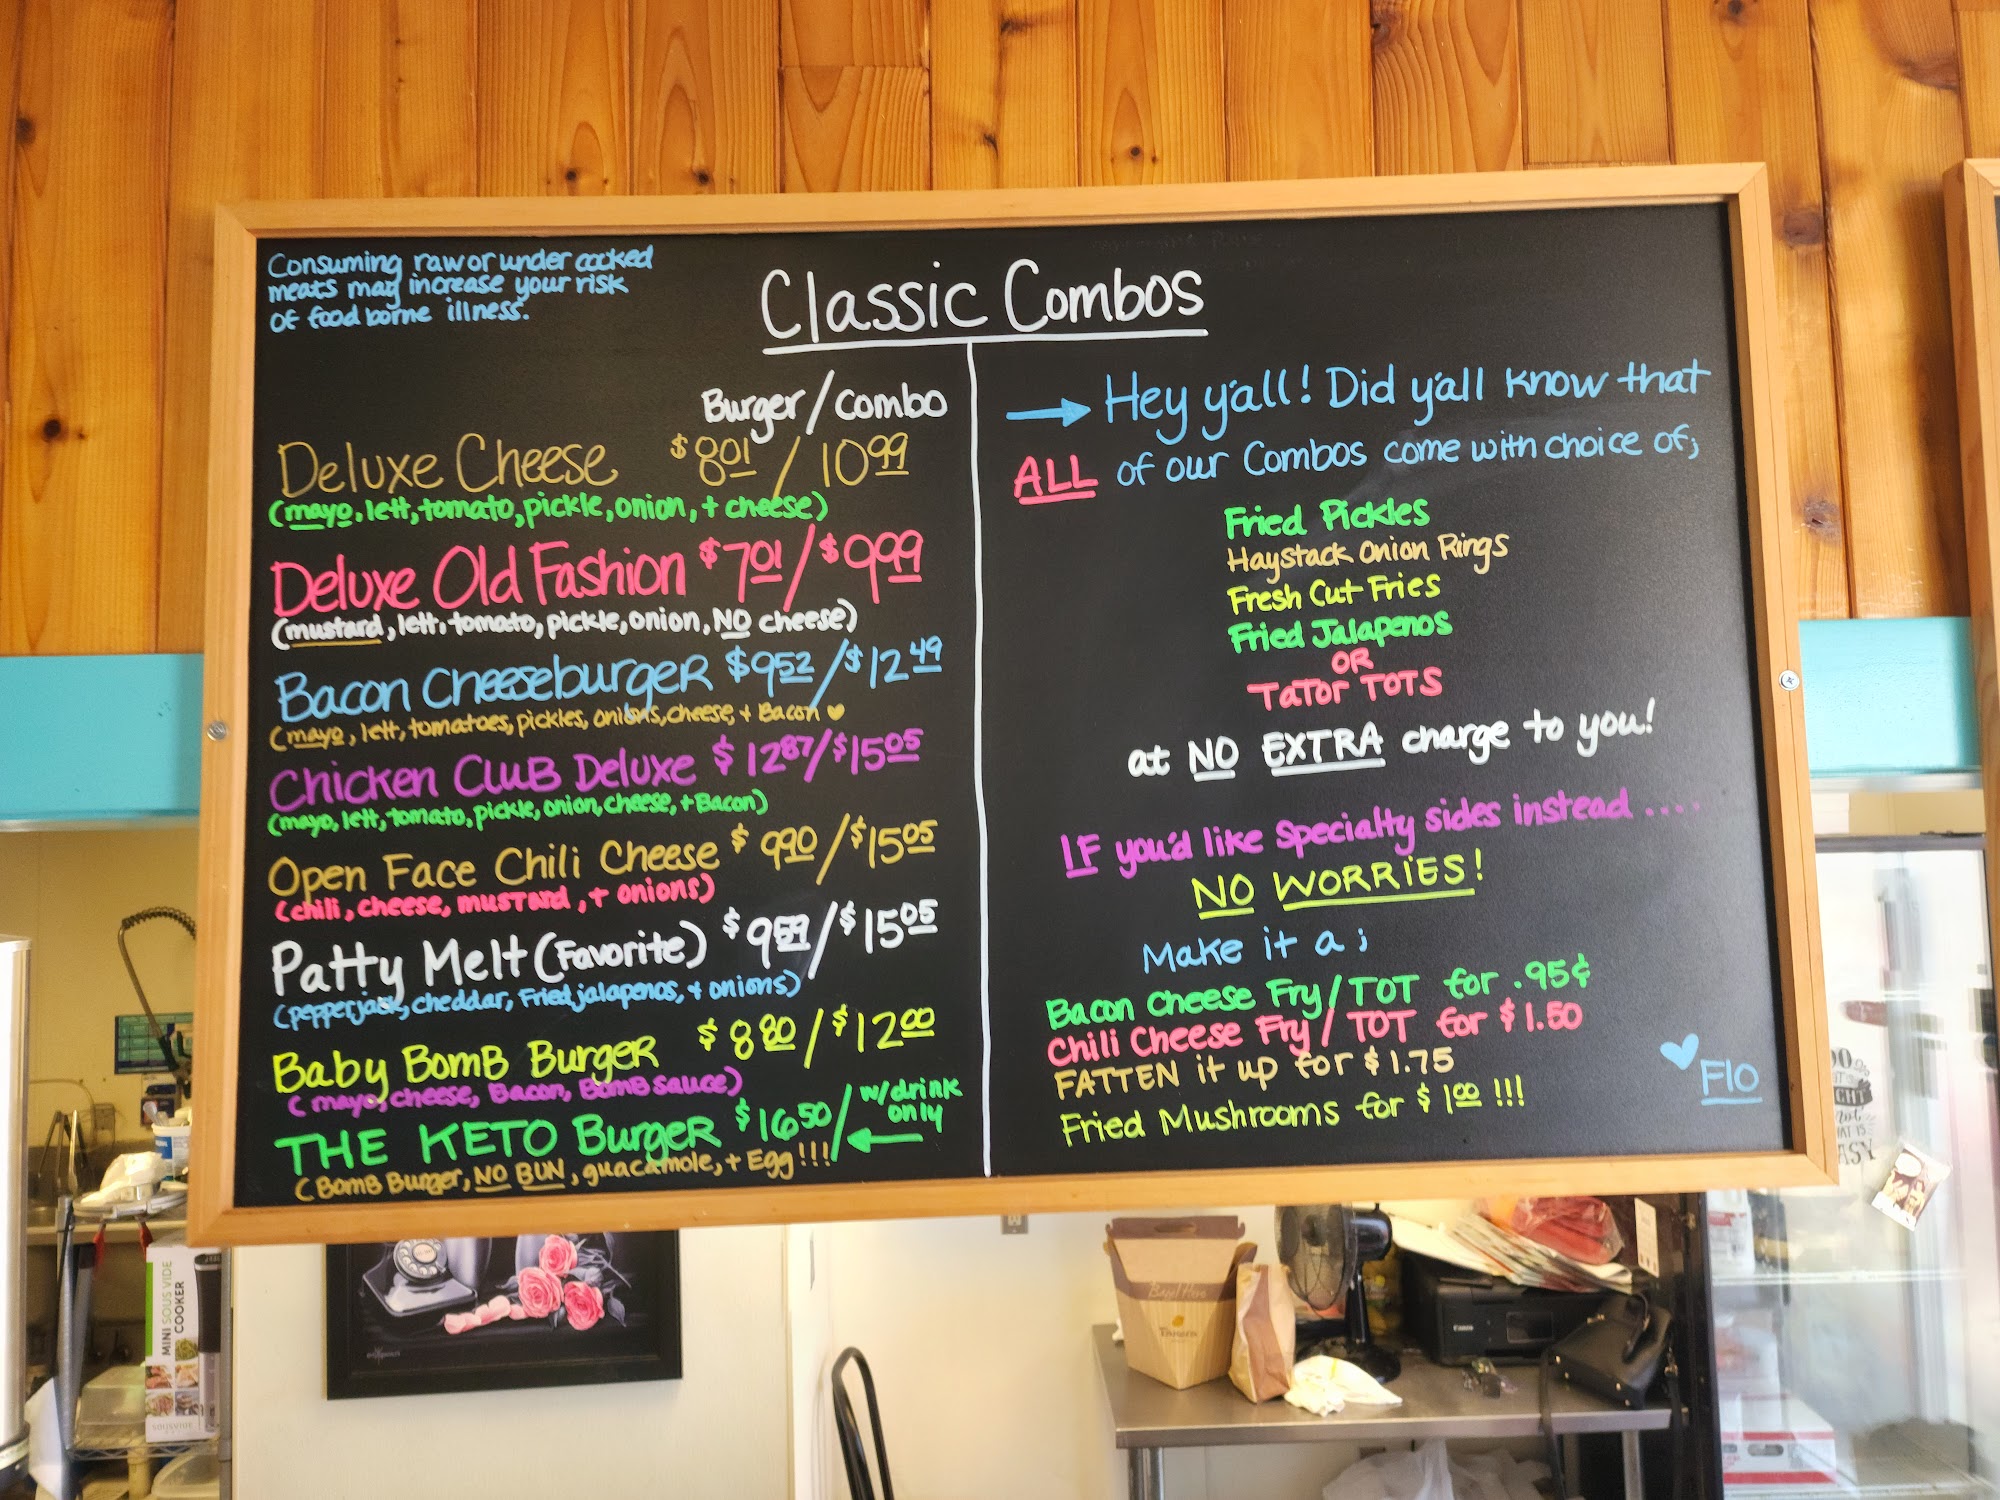 Consuming raw or under cooked
meats may increase your risk
of food borne illness.
Classic Combos
Burger/combo
Deluxe Cheese $8.01/10.99
(mayo, lett, tomato, pickle, onion, + cheese)
Deluxe Old Fashion $7.01/$9.99
(mustard, lett, tomato, pickle, onion, NO cheese)
Bacon Cheeseburger $9.52/$12.49
(mayo, lett, tomatoes, pickles, onions, cheese, + Bacon ♥
Chicken Club Deluxe $12.87/$15.05
(mayo, lett, tomato, pickle, onion, cheese, + Bacon)
Open Face Chili Cheese $9.90/$15.05
(chili, cheese, mustard, + onions)
Patty Melt (Favorite) $9.59/$15.05
(pepperjack, cheddar, Fried jalapenos, + onions)
Baby Bomb Burger $8.80/$12.00
(mayo, cheese, Bacon, Bomb sauce)
THE KETO Burger $16.50/ w/drink only
(Bomb Burger, NO BUN, guacamole, + Egg!!!)
→ Hey y'all! Did y'all know that
ALL of our Combos come with choice of;
Fried Pickles
Haystack Onion Rings
Fresh Cut Fries
Fried Jalapenos
OR
Tator TOTS
at NO EXTRA charge to you!
IF you'd like Specialty sides instead....
NO WORRIES!
Make it a ;
Bacon Cheese Fry/TOT for .95¢
Chili Cheese Fry/TOT for $1.50
FATTEN it up for $1.75
Fried Mushrooms for $1.00 !!!
♥ FIO
MINI SOUS VIDE
COOKER
SOUSVIDE
Canon